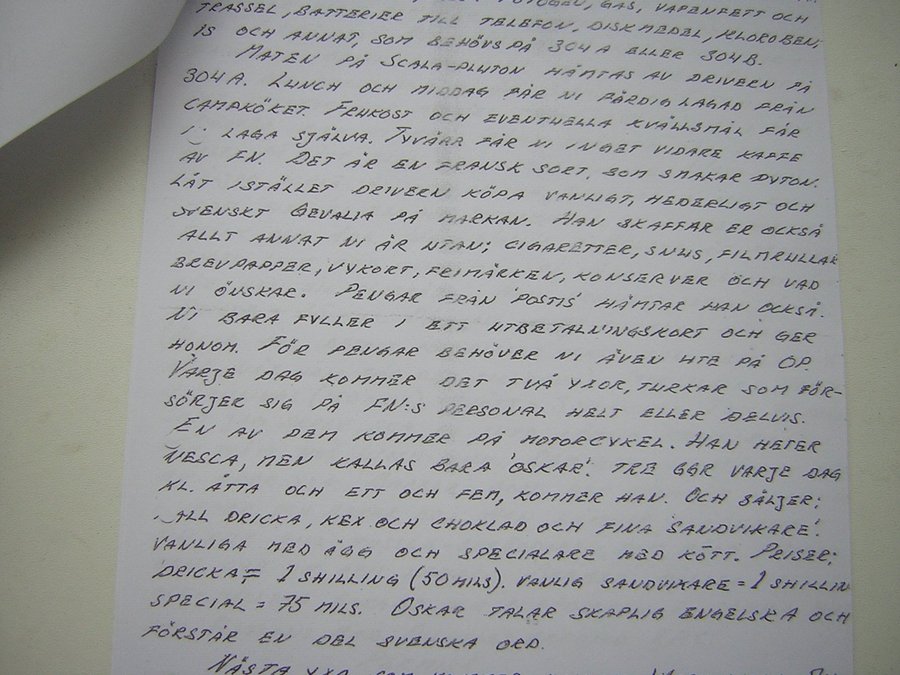 FOTOGEN, GAS, VAPENFETT OCH
TRASSEL, BATTERIER TILL TELEFON, DISKMEDEL, KLOROBEN,
IS OCH ANNAT, SOM BEHÖVS PÅ 304A ELLER 304B.
MATEN PÅ SCALA-PLUTON HÄMTAS AV DRIVERN PÅ
304A. LUNCH OCH MIDDAG FÅR NI FÄRDIGLAGAD FRÅN
CAMPKÖKET. FRUKOST OCH EVENTUELLA KVÄLLSMÅL FÅR
NI LAGA SJÄLVA. TYVÄRR FÅR NI INGET VIDARE KAFFE
AV FN. DET ÄR EN FRANSK SORT, SOM SMAKAR DYTON.
LÅT ISTÄLLET DRIVERN KÖPA VANLIGT, HEDERLIGT OCH
SVENSKT GEVALIA PÅ MARKAN. HAN SKAFFAR ER OCKSÅ
ALLT ANNAT NI ÄR UTAN; CIGARETTER, SNUS, FILMRULLAR
BREVPAPPER, VYKORT, FRIMÄRKEN, KONSERVER OCH VAD
NI ÖNSKAR. PENGAR FRÅN 'POSTIS' HÄMTAR HAN OCKSÅ.
NI BARA FYLLER I ETT UTBETALNINGSKORT OCH GER
HONOM. FÖR PENGAR BEHÖVER NI ÄVEN UTE PÅ OP.
VARJE DAG KOMMER DET TVÅ YXOR, TURKAR SOM FÖR-
SÖRJER SIG PÅ FN:S PERSONAL HELT ELLER DELVIS.
EN AV DEM KOMMER PÅ MOTORCYKEL. HAN HETER
VESCA, MEN KALLAS BARA 'OSKAR'. TRE GGR VARJE DAG
KL. ÅTTA OCH ETT OCH FEM, KOMMER HAN. OCH SÄLJER;
KALL DRICKA, KEX OCH CHOKLAD OCH FINA 'SANDVIKARE'.
VANLIGA MED ÄGG OCH SPECIALARE MED KÖTT. PRISER;
DRICKA = 1 SHILLING (50 MILS). VANLIG SANDVIKARE = 1 SHILLIN
SPECIAL = 75 MILS. OSKAR TALAR SKAPLIG ENGELSKA OCH
FÖRSTÅR EN DEL SVENSKA ORD.
NÄSTA YXA SOM